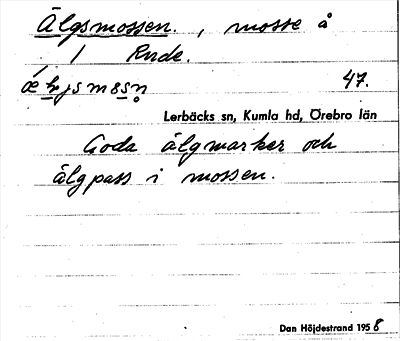 Älgsmossen. , mosse å
1 Rude.
47.
Lerbäcks sn, Kumla hd, Örebro län
Goda älgmarker och
älgpass i mossen.
Dan Höjdestrand 1958